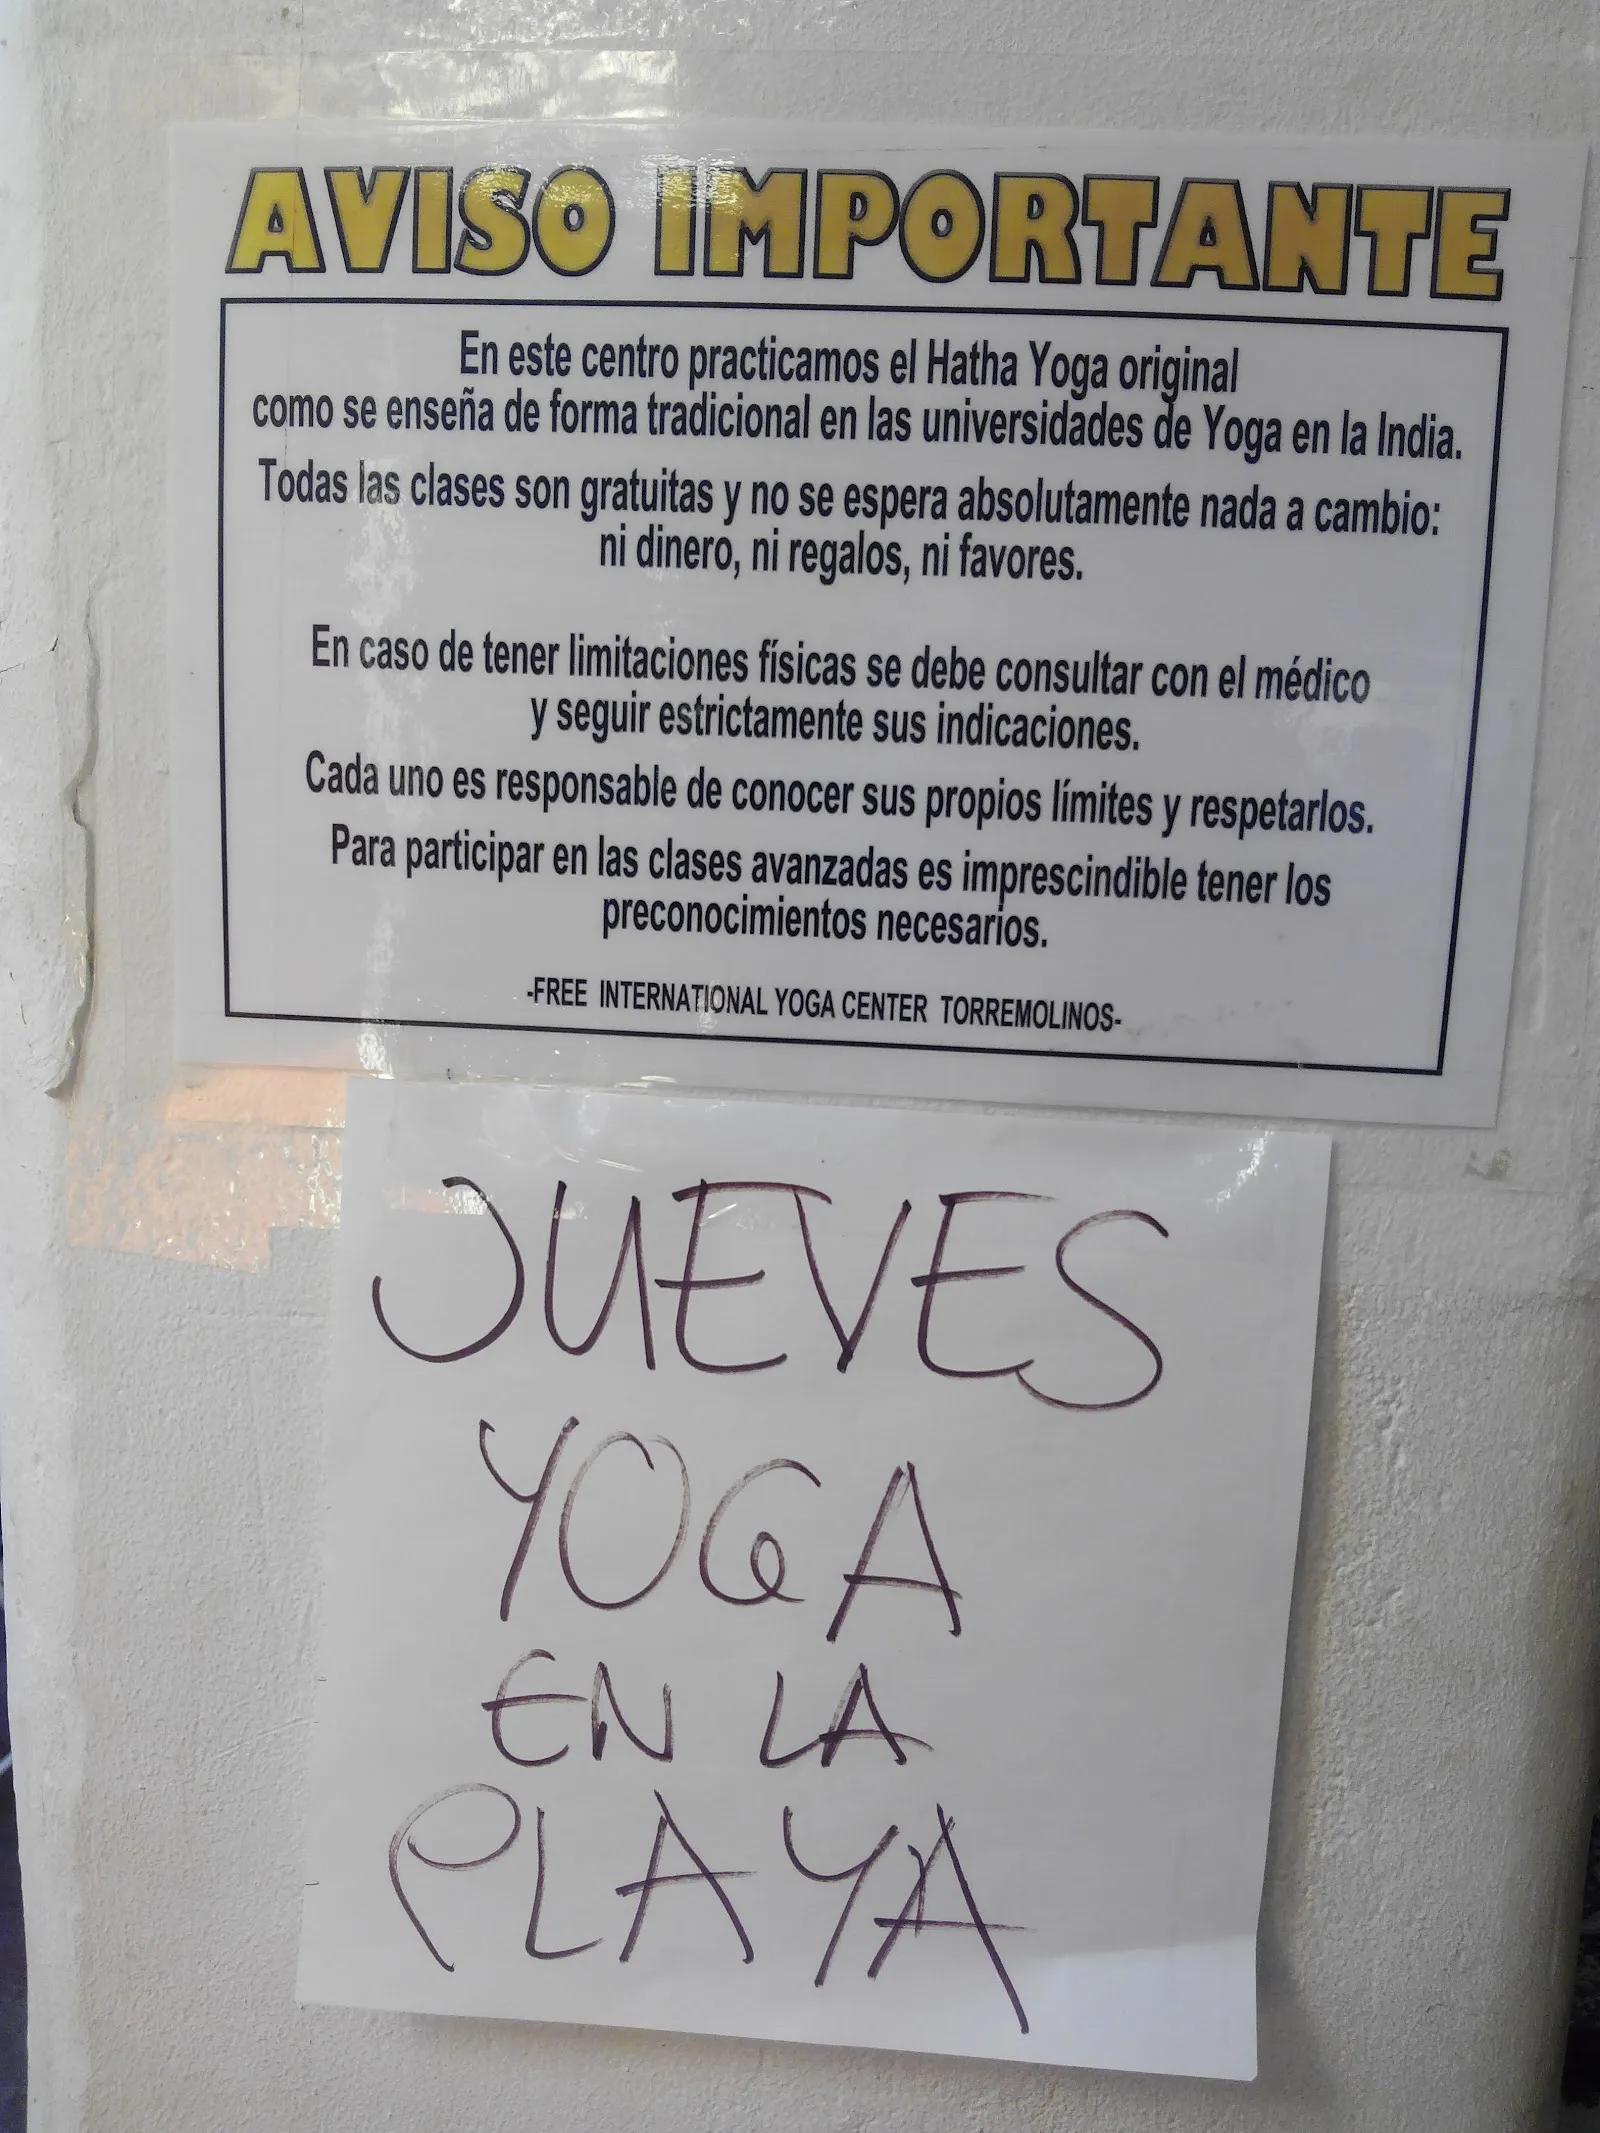 AVISO IMPORTANTE
En este centro practicamos el Hatha Yoga original
como se enseña de forma tradicional en las universidades de Yoga en la India.
Todas las clases son gratuitas y no se espera absolutamente nada a cambio:
ni dinero, ni regalos, ni favores.
En caso de tener limitaciones físicas se debe consultar con el médico
y seguir estrictamente sus indicaciones.
Cada uno es responsable de conocer sus propios límites y respetarlos.
Para participar en las clases avanzadas es imprescindible tener los
preconocimientos necesarios.
-FREE INTERNATIONAL YOGA CENTER TORREMOLINOS-
JUEVES
YOGA
EN LA
PLAYA